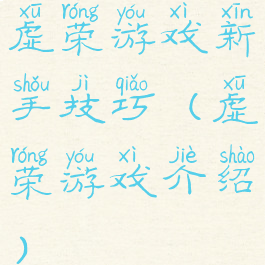 xū róng yóu xì xīn
虚荣游戏新
shǒu jì qiǎo xū
手技巧(虚
róng yóu xì jiè shào
荣游戏介绍
)